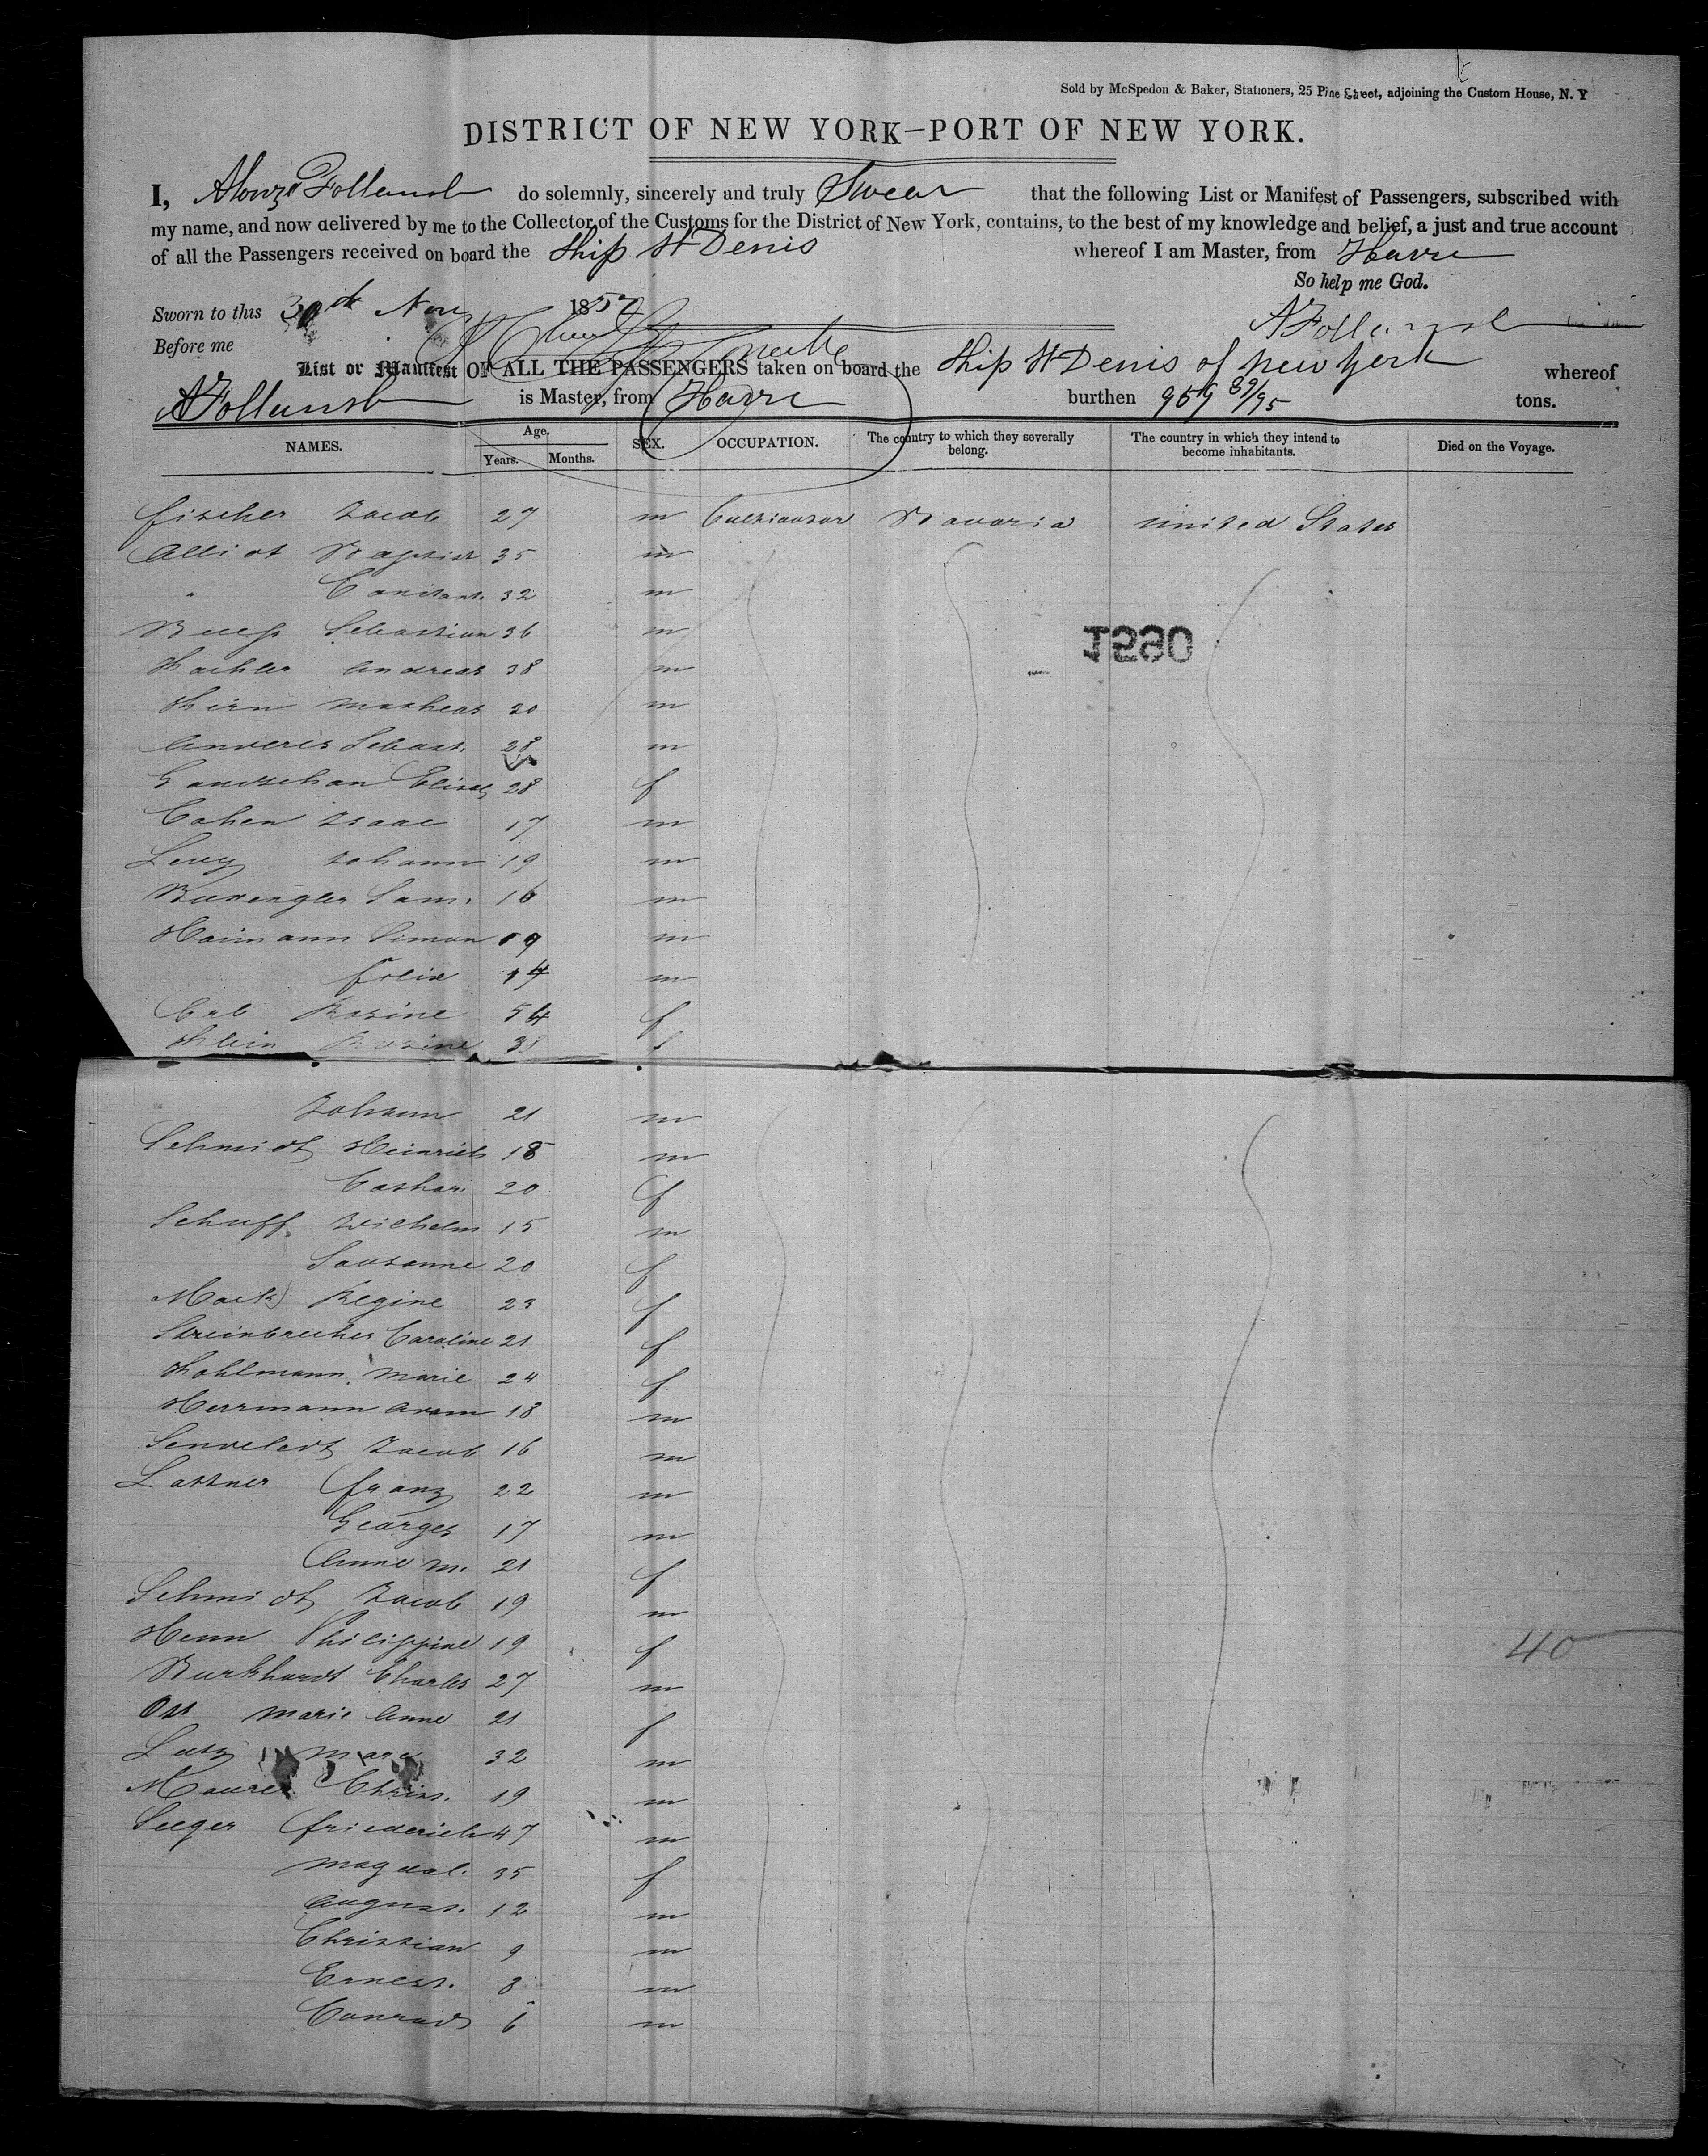 Sold by McSpedon & Baker, Stationers, 25 Pine Street, adjoining the Custom House, N. Y
DISTRICT OF NEW YORK—PORT OF NEW YORK.
I, Alonzo Follansb do solemnly, sincerely and truly Swear that the following List or Manifest of Passengers, subscribed with
my name, and now delivered by me to the Collector of the Customs for the District of New York, contains, to the best of my knowledge and belief, a just and true account
of all the Passengers received on board the Ship St Denis whereof I am Master, from Havre
So help me God.
Sworn to this 30th Nov 1852
A Follansb
Before me
List or Manifest OF ALL THE PASSENGERS taken on board the Ship St Denis of New York whereof
A Follansb is Master, from Havre burthen 959 89/95 tons.
NAMES. Age. Years. Months. SEX. OCCUPATION. The country to which they severally belong. The country in which they intend to become inhabitants. Died on the Voyage.
Fischer Jacob 27 m Cultivator Bavaria United States
Alliot Baptist 35 m
" Constant. 32 m
Sebastian 36 m
Koehler Andreas 38 m
Matheas 20 m
Sebast. 28 m
Elisab 28 f
Cahen Isaac 17 m
Levy Johann 19 m
Sam. 16 m
Heimann Simon 59 m
Felix 14 m
Rosine 54 f
Klein Rosine 31 f
Johann 21 m
Schmidt Heinrich 18 m
Cathar. 20 f
Schuff Wilhelm 15 m
Sousanne 20 f
Mack Regine 23 f
Steinbrecher Caroline 21 f
Kohlmann Marie 24 f
Herrmann Adam 18 m
Jacob 16 m
Lattner Franz 22 m
Georges 17 m
Anne M. 21 f
Schmidt Jacob 19 m
Henn Philippine 19 f
40
Burkhardt Charles 27 m
Ott Marie Anne 21 f
Lutz Marc 32 m
Maurer Christ. 19 m
Seeger Friederich 47 m
Magdal. 35 f
August. 12 m
Christian 9 m
Ernest. 8 m
Conrad 6 m